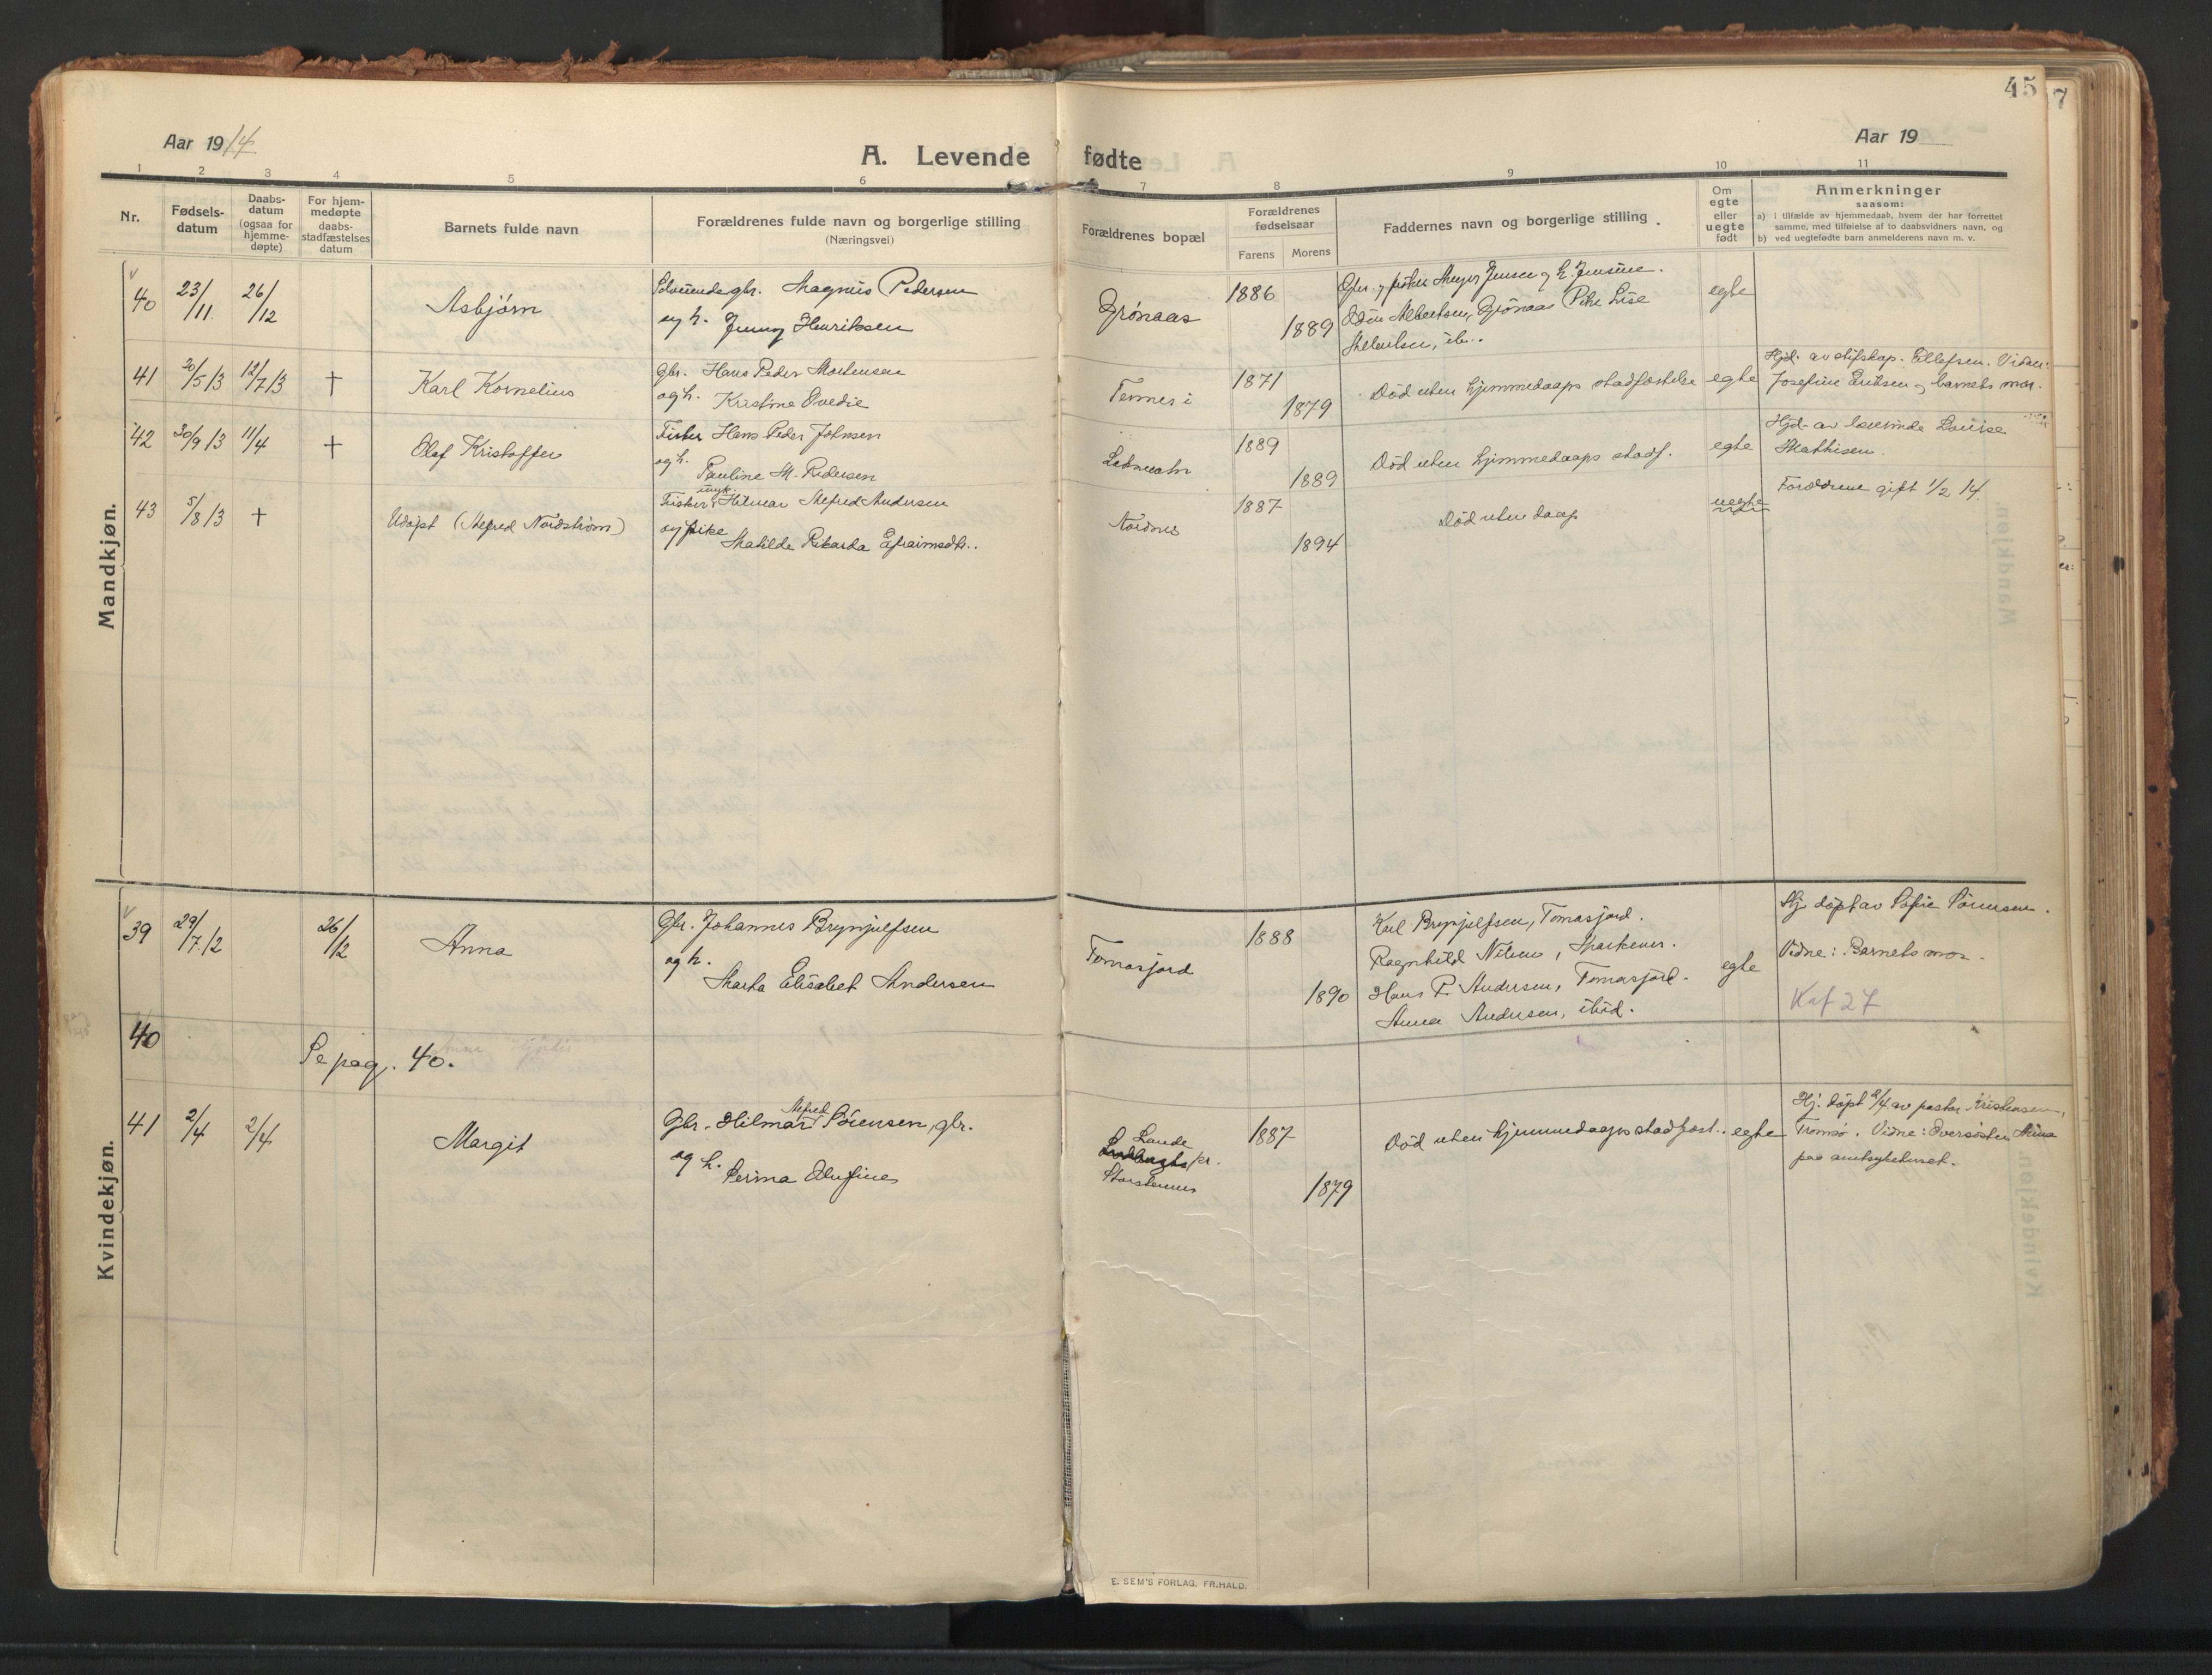 45
7
Aar 1914
A. Levende fødte
Aar 19
1 2 3 4 5 6 7 8 9 10 11
Nr.
Fødsels-
datum
Daabs-
datum
(ogsaa for
hjemme-
døpte)
For hjem-
medøpte
daabs-
stadfæstelses
datum
Barnets fulde navn
Forældrenes fulde navn og borgerlige stilling
(Næringsvei)
Forældrenes bopæl
Forældrenes
fødselsaar
Farens Morens
Faddernes navn og borgerlige stilling
Om
egte
eller
uegte
født
Anmerkninger
saasom:
a) i tilfælde av hjemmedaab, hvem der har forrettet
samme, med tilføielse af to daabsvidners navn, og
b) ved uegtefødte barn anmelderens navn m. v.
Mandkjøn.
40 23/11 26/12 Asbjørn
gbr. Magnus Pedersen
og h. Jenny Henriksen
Grønaas
1886
1889
Gbr. og fisker Meyer Jensen og h. Jensine.
Odin Albertsen, Grønaas Pike Lise
Albertsen, ib.
egte
41 30/5 13 12/7 13 † Karl Kornelius
Gbr. Hans Peder Mortensen
og h. Kristine Ovedie
Tennes i
1871
1879
Død uten hjemmedaaps stadfæstelse
egte
Hjd. av Ellefsen. Vidner:
Josefine Eriksen og barnets mor.
42 30/9 13 11/4 † Olaf Kristoffer
Fisker Hans Peder Johnsen
og h. Pauline M. Pedersen
1889
1889
Død uten hjemmedaaps stadf.
egte
Hjd. av lærerinde Louise
Mathisen.
43 5/8 13 † Udøpt (Alfred Nordstrøm)
ungk.
Fisker Hilmar Alfred Andersen
og pike Matilde Rikarda Efraimsdtr.
Nordnes
1887
1894
Død uten daap
uegte
Forældrene gift 1/2 14.
Kvindekjøn.
39 29/7 12 26/12 Anna
Gbr. Johannes Brynjulfsen
og h.
Marta Elisabet Andersen
Tomasjord
1888
1890
Karl Brynjulfsen, Tomasjord.
Ragnhild Nilsen,
Hans P. Andersen, Tomasjord.
Anna Andersen, ibid.
egte
Hj. døpt av Sofie Sørensen.
Vidne: Barnets mor.
Kaf 27
40
Se pag. 40.
41 2/4 2/4 Margit
Alfred
Gbr. Hilmar Sørensen, gbr.
og h.
Perina Olufine
pr.
Storstennes
1887
1879
Død uten hjemmedaaps stadfæst.
egte
Hj. døpt 2/4 av pastor Kristensen,
Tromsø. Vidne: Oversøster Mina
paa amtsykehuset.
E. SEM'S FORLAG, FR.HALD.